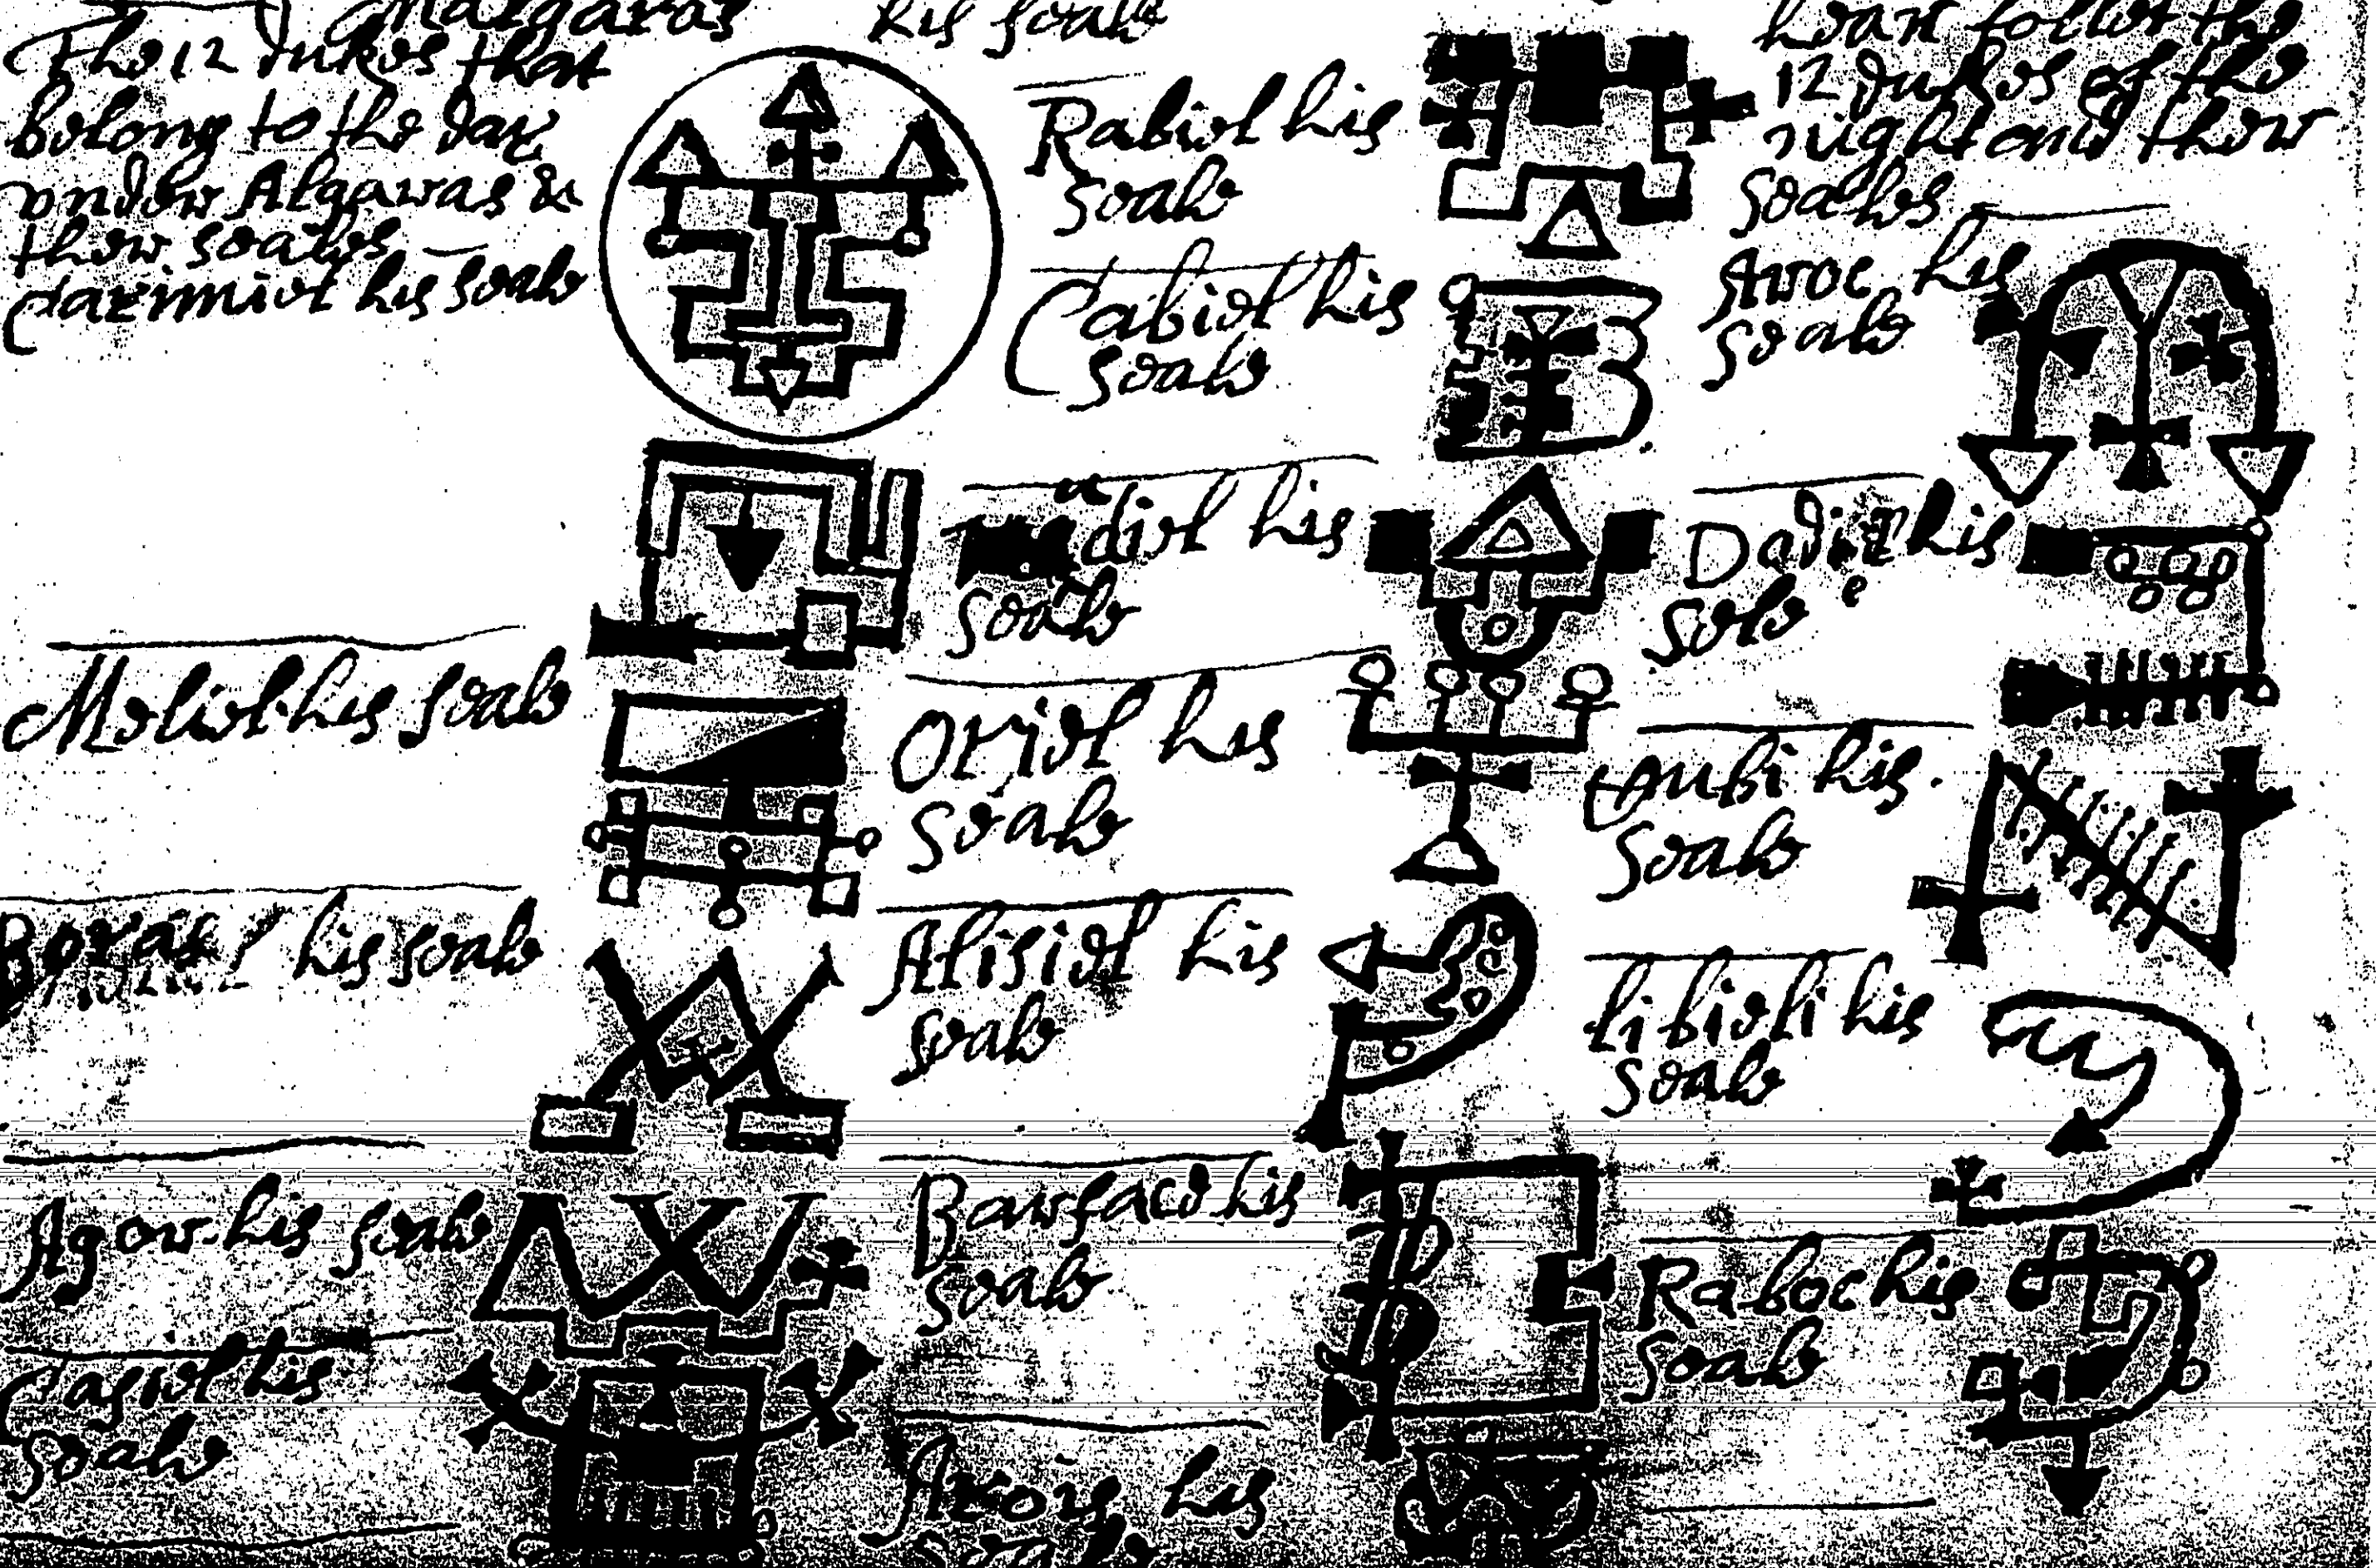 Malgaras his seale
The 12 dukes that
belong to the day
under Algaras &
ther seales
Carimiel his seale
Meliel his seale
Boras his seale
Agor his seale
Casiel his
seale
Rabiel his
seale
Cabiel his
seale
udiel his
seale
Oriel his
seale
Alisiel his
seale
Barface his
seale
Arois his
seale
hear follow the
12 dukes of the
night and ther
seales
Aroc his
seale
Dadiel his
sele
his
seale
libieli his
seale
Raboc his
seale